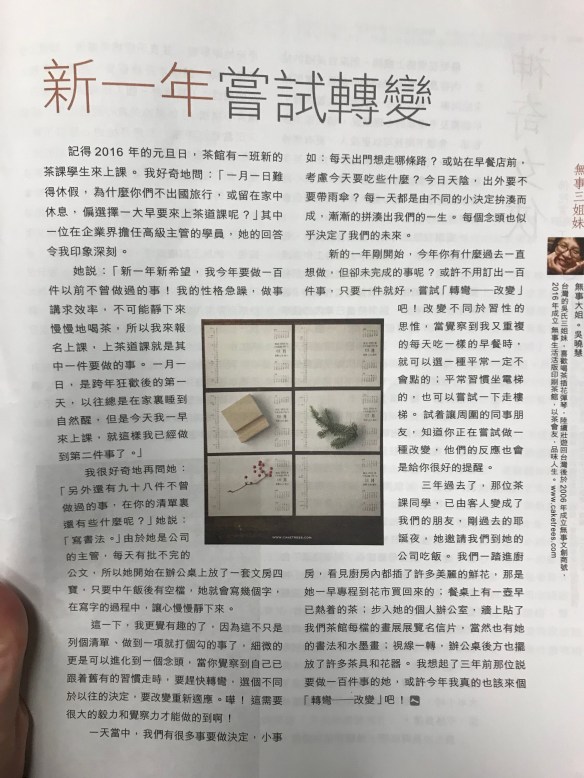 新一年嘗試轉變
記得2016 年的元旦日，茶館有一班新的
茶課學生來上課。我好奇地問：「一月一日難
得休假，為什麼你們不出國旅行，或留在家中
休息，偏選擇一大早要來上茶道課呢？」其中
一位在企業界擔任高級主管的學員，她的回答
令我印象深刻。
她說：「新一年新希望，我今年要做一百
件以前不曾做過的事！我的性格急躁，做事
講求效率，不可能靜下來
慢慢地喝茶，所以我來報
名上課，上茶道課就是其
中一件要做的事。一月一
日，是跨年狂歡後的第一
天，以往總是在家裏睡到
自然醒，但是今天我一早
來上課，就這樣我已經做
到第二件事了。」
我很好奇地再問她：
「另外還有九十八件不曾
做過的事，在你的清單裏
還有些什麼呢？」她說：
「寫書法。」由於她是公司
的主管，每天有批不完的
公文，所以她開始在辦公桌上放了一套文房四
寶，只要中午飯後有空檔，她就會寫幾個字，
在寫字的過程中，讓心慢慢靜下來。
這一下，我更覺有趣的了，因為這不只是
列個清單、做到一項就打個勾的事了，細微的
更是可以進化到一個念頭，當你覺察到自己已
跟着舊有的習慣走時，要趕快轉彎，選個不同
於以往的決定，要改變重新適應。嘩！這需要
很大的毅力和覺察力才能做的到啊！
一天當中，我們有很多事要做決定，小事
如：每天出門想走哪條路？或站在早餐店前，
考慮今天要吃些什麼？今日天陰，出外要不
要帶雨傘？每一天都是由不同的小決定拚湊而
成，漸漸的拼湊出我們的一生。每個念頭也似
乎決定了我們的未來。
新的一年剛開始，今年你有什麼過去一直
想做，但卻未完成的事呢？或許不用訂出一百
件事，只要一件就好，嘗試「轉彎──改變」
吧！改變不同於習性的
思惟，當覺察到我又重複
的每天吃一樣的早餐時，
就可以選一種平常一定不
會點的；平常習慣坐電梯
的，也可以嘗試一下走樓
梯。試着讓周圍的同事朋
友，知道你正在嘗試做一
種改變，他們的反應也會
是給你很好的提醒。
三年過去了，那位茶
課同學，已由客人變成了
我們的朋友，剛過去的耶
誕夜，她邀請我們到她的
公司吃飯。我們一踏進廚
房，看見廚房內都插了許多美麗的鮮花，那是
她一早專程到花市買回來的；餐桌上有一壺早
已熱着的茶；步入她的個人辦公室，牆上貼了
我們茶館每檔的畫展展覽名信片，當然也有她
的書法和水墨畫；視線一轉，辦公桌後方也擺
放了許多茶具和花器。我想起了三年前那位說
要做一百件事的她，或許今年我真的也該來個
「轉彎──改變」吧！
WWW.CAKETREES.COM
無事三姐妹
無事大姐。吳曉慧
台灣的吳氏三姐妹，喜歡喝茶插花彈琴，陸續壯遊回台灣後於 2006 年成立無事文創商號，
2016 年成立無事生活活版印刷茶館，以茶會友，品味人生。www.caketrees.com